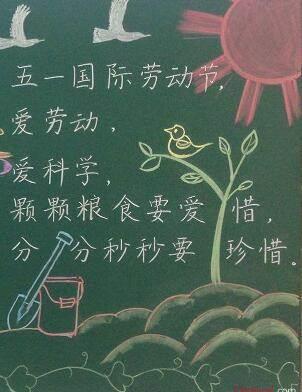 五一国际劳动节,
爱劳动,
爱科学,
颗颗粮食要爱惜,
分分秒秒要珍惜。